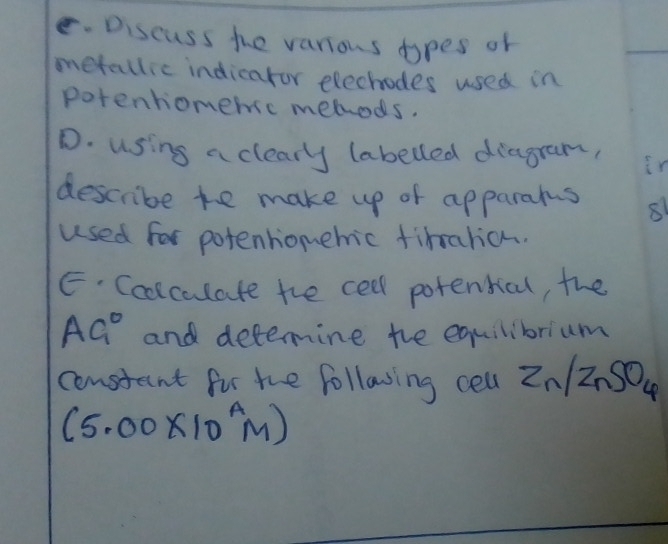 C. Discuss the various types of
metallic indicator electrodes used in
potentiometric methods.
D. using a clearly labelled diagram,
describe the make up of apparatus
used for potentiometric titration.
E. Calculate the cell potential, the
ΔG° and determine the equilibrium
constant for the following cell Zn/ZnSO4
(5.00X10^A M)
in